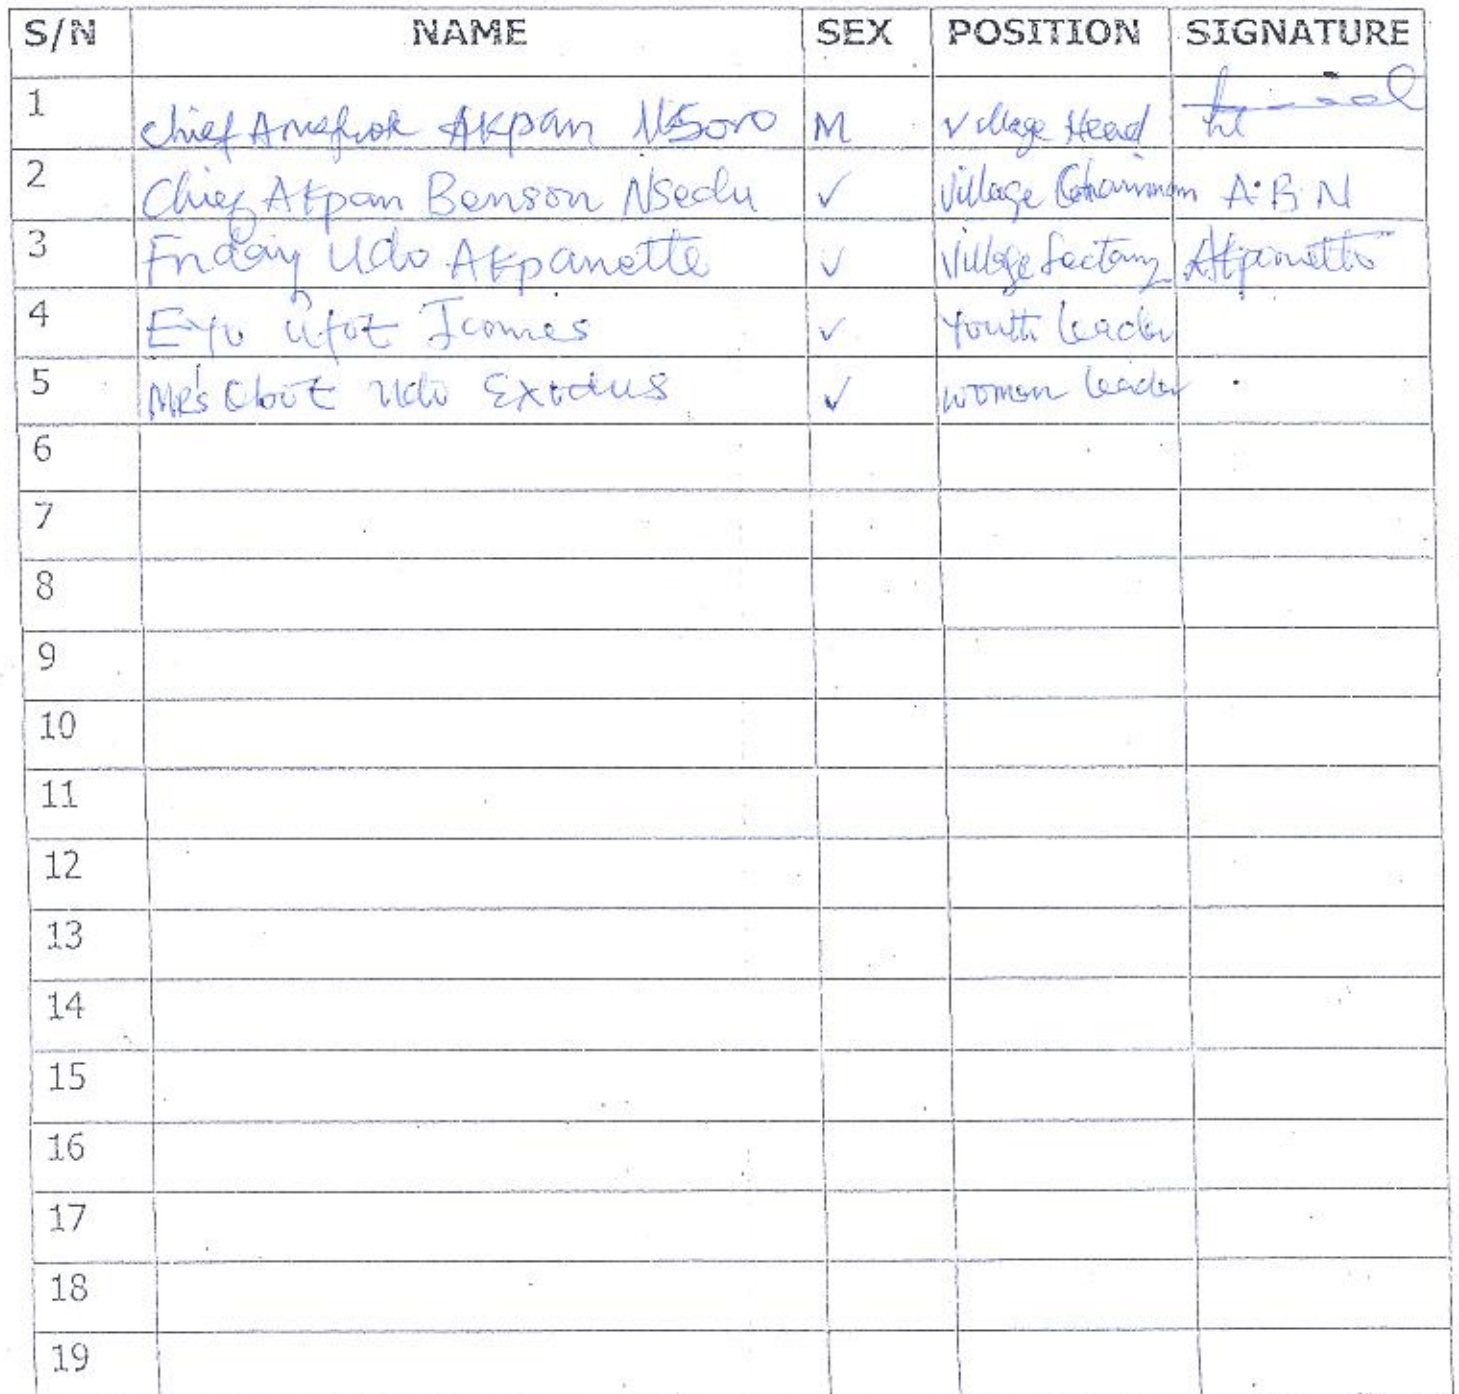 S/N NAME SEX POSITION SIGNATURE
1 Chief Akpan M Village Head
2 Chief Akpan Benson Nsedu ✓ Village Chairman A.B.N
3 Friday Udo Akpanette ✓ Village Akpanette
4 Eyo Ufot ✓ Youth Leader
5 Mrs Udo Exodus ✓ Women Leader
6
7
8
9
10
11
12
13
14
15
16
17
18
19